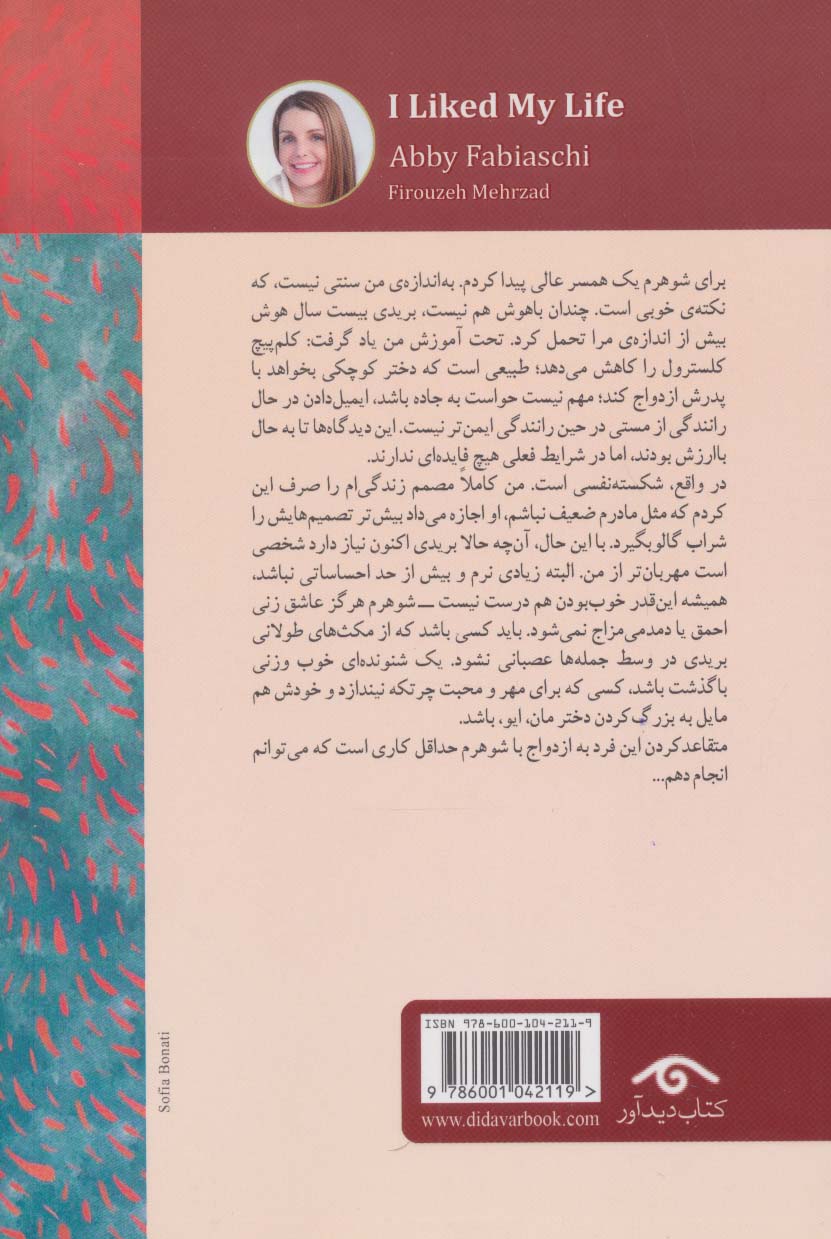 I Liked My Life
Abby Fabiaschi
Firouzeh Mehrzad
برای شوهرم یک همسر عالی پیدا کردم. به‌اندازه‌ی من سنتی نیست، که
نکته‌ی خوبی است. چندان باهوش هم نیست، بریدی بیست سال هوش
بیش از اندازه‌ی مرا تحمل کرد. تحت آموزش من یاد گرفت: کلم‌پیچ
کلسترول را کاهش می‌دهد؛ طبیعی است که دختر کوچکی بخواهد با
پدرش ازدواج کند؛ مهم نیست حواست به جاده باشد، ایمیل‌دادن در حال
رانندگی از مستی در حین رانندگی ایمن‌تر نیست. این دیدگاه‌ها تا به حال
باارزش بودند، اما در شرایط فعلی هیچ فایده‌ای ندارند.
در واقع، شکسته‌نفسی است. من کاملاً مصمم زندگی‌ام را صرف این
کردم که مثل مادرم ضعیف نباشم، او اجازه می‌داد بیش‌تر تصمیم‌هایش را
شراب گالو بگیرد. با این حال، آن‌چه حالا بریدی اکنون نیاز دارد شخصی
است مهربان‌تر از من. البته زیادی نرم و بیش از حد احساساتی نباشد،
همیشه این‌قدر خوب‌بودن هم درست نیست ـــ شوهرم هرگز عاشق زنی
احمق یا دمدمی‌مزاج نمی‌شود. باید کسی باشد که از مکث‌های طولانی
بریدی در وسط جمله‌ها عصبانی نشود. یک شنونده‌ای خوب وزنی
باگذشت باشد، کسی که برای مهر و محبت چرتکه نیندازد و خودش هم
مایل به بزرگ‌کردن دختر مان، ایو، باشد.
متقاعدکردن این فرد به ازدواج با شوهرم حداقل کاری است که می‌توانم
انجام دهم...
Sofia Bonati
ISBN 978-600-104-211-9
9 786001 042119 >
www.didavarbook.com
کتاب دیدآور